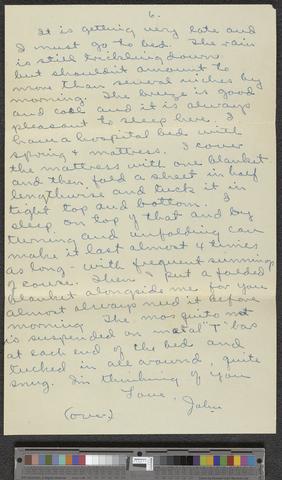 6.
It is getting very late and
I must go to bed. The rain
is still trickling down
but shouldn't amount to
more than several inches by
morning. The breeze is good
and cool and it is always
pleasant to sleep here. I
have a hospital bed with
spring & mattress. I cover
the mattress with one blanket
and then fold a sheet in half
lengthwise and tuck it in
tight top and bottom. I
sleep on top of that and by
turning and unfolding can
make it last almost 4 times
as long - with frequent sunnings
of course. Then I put a folded
blanket alongside me for you
almost always need it before
morning. The mosquito net
is suspended on metal "T" bar
at each end of the bed and
tucked in all around, quite
snug. Im thinking of you
Love, John
(over)